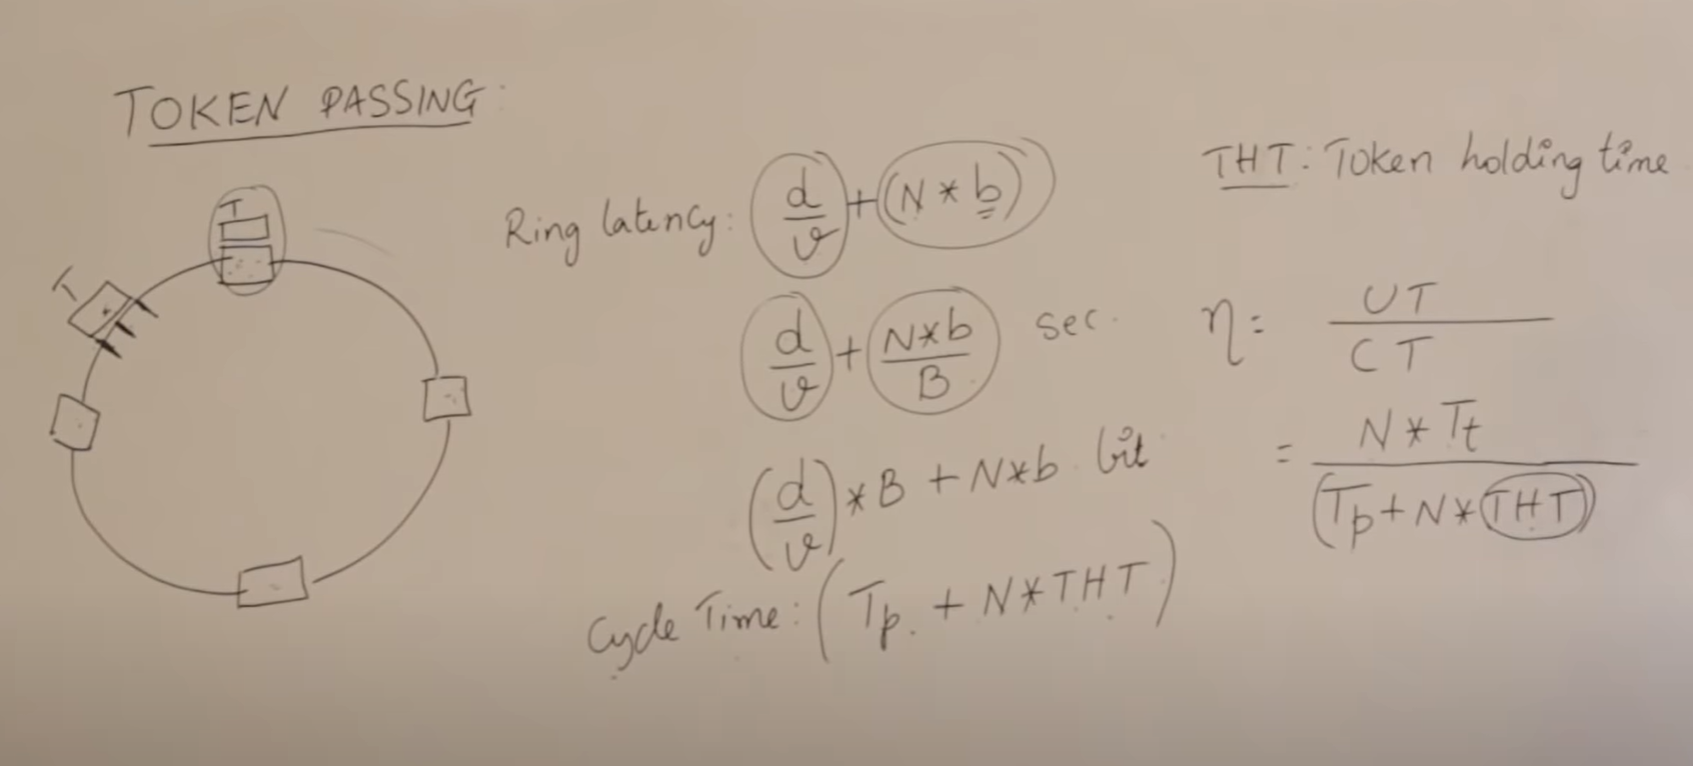 TOKEN PASSING:
T
T
Ring latency: d/v + (N * b)
d/v + N*b/B sec.
(d/v) * B + N*b bit
Cycle Time: (Tp + N*THT)
THT: Token holding time
η = UT/CT
= N * Tt/(Tp + N * THT)